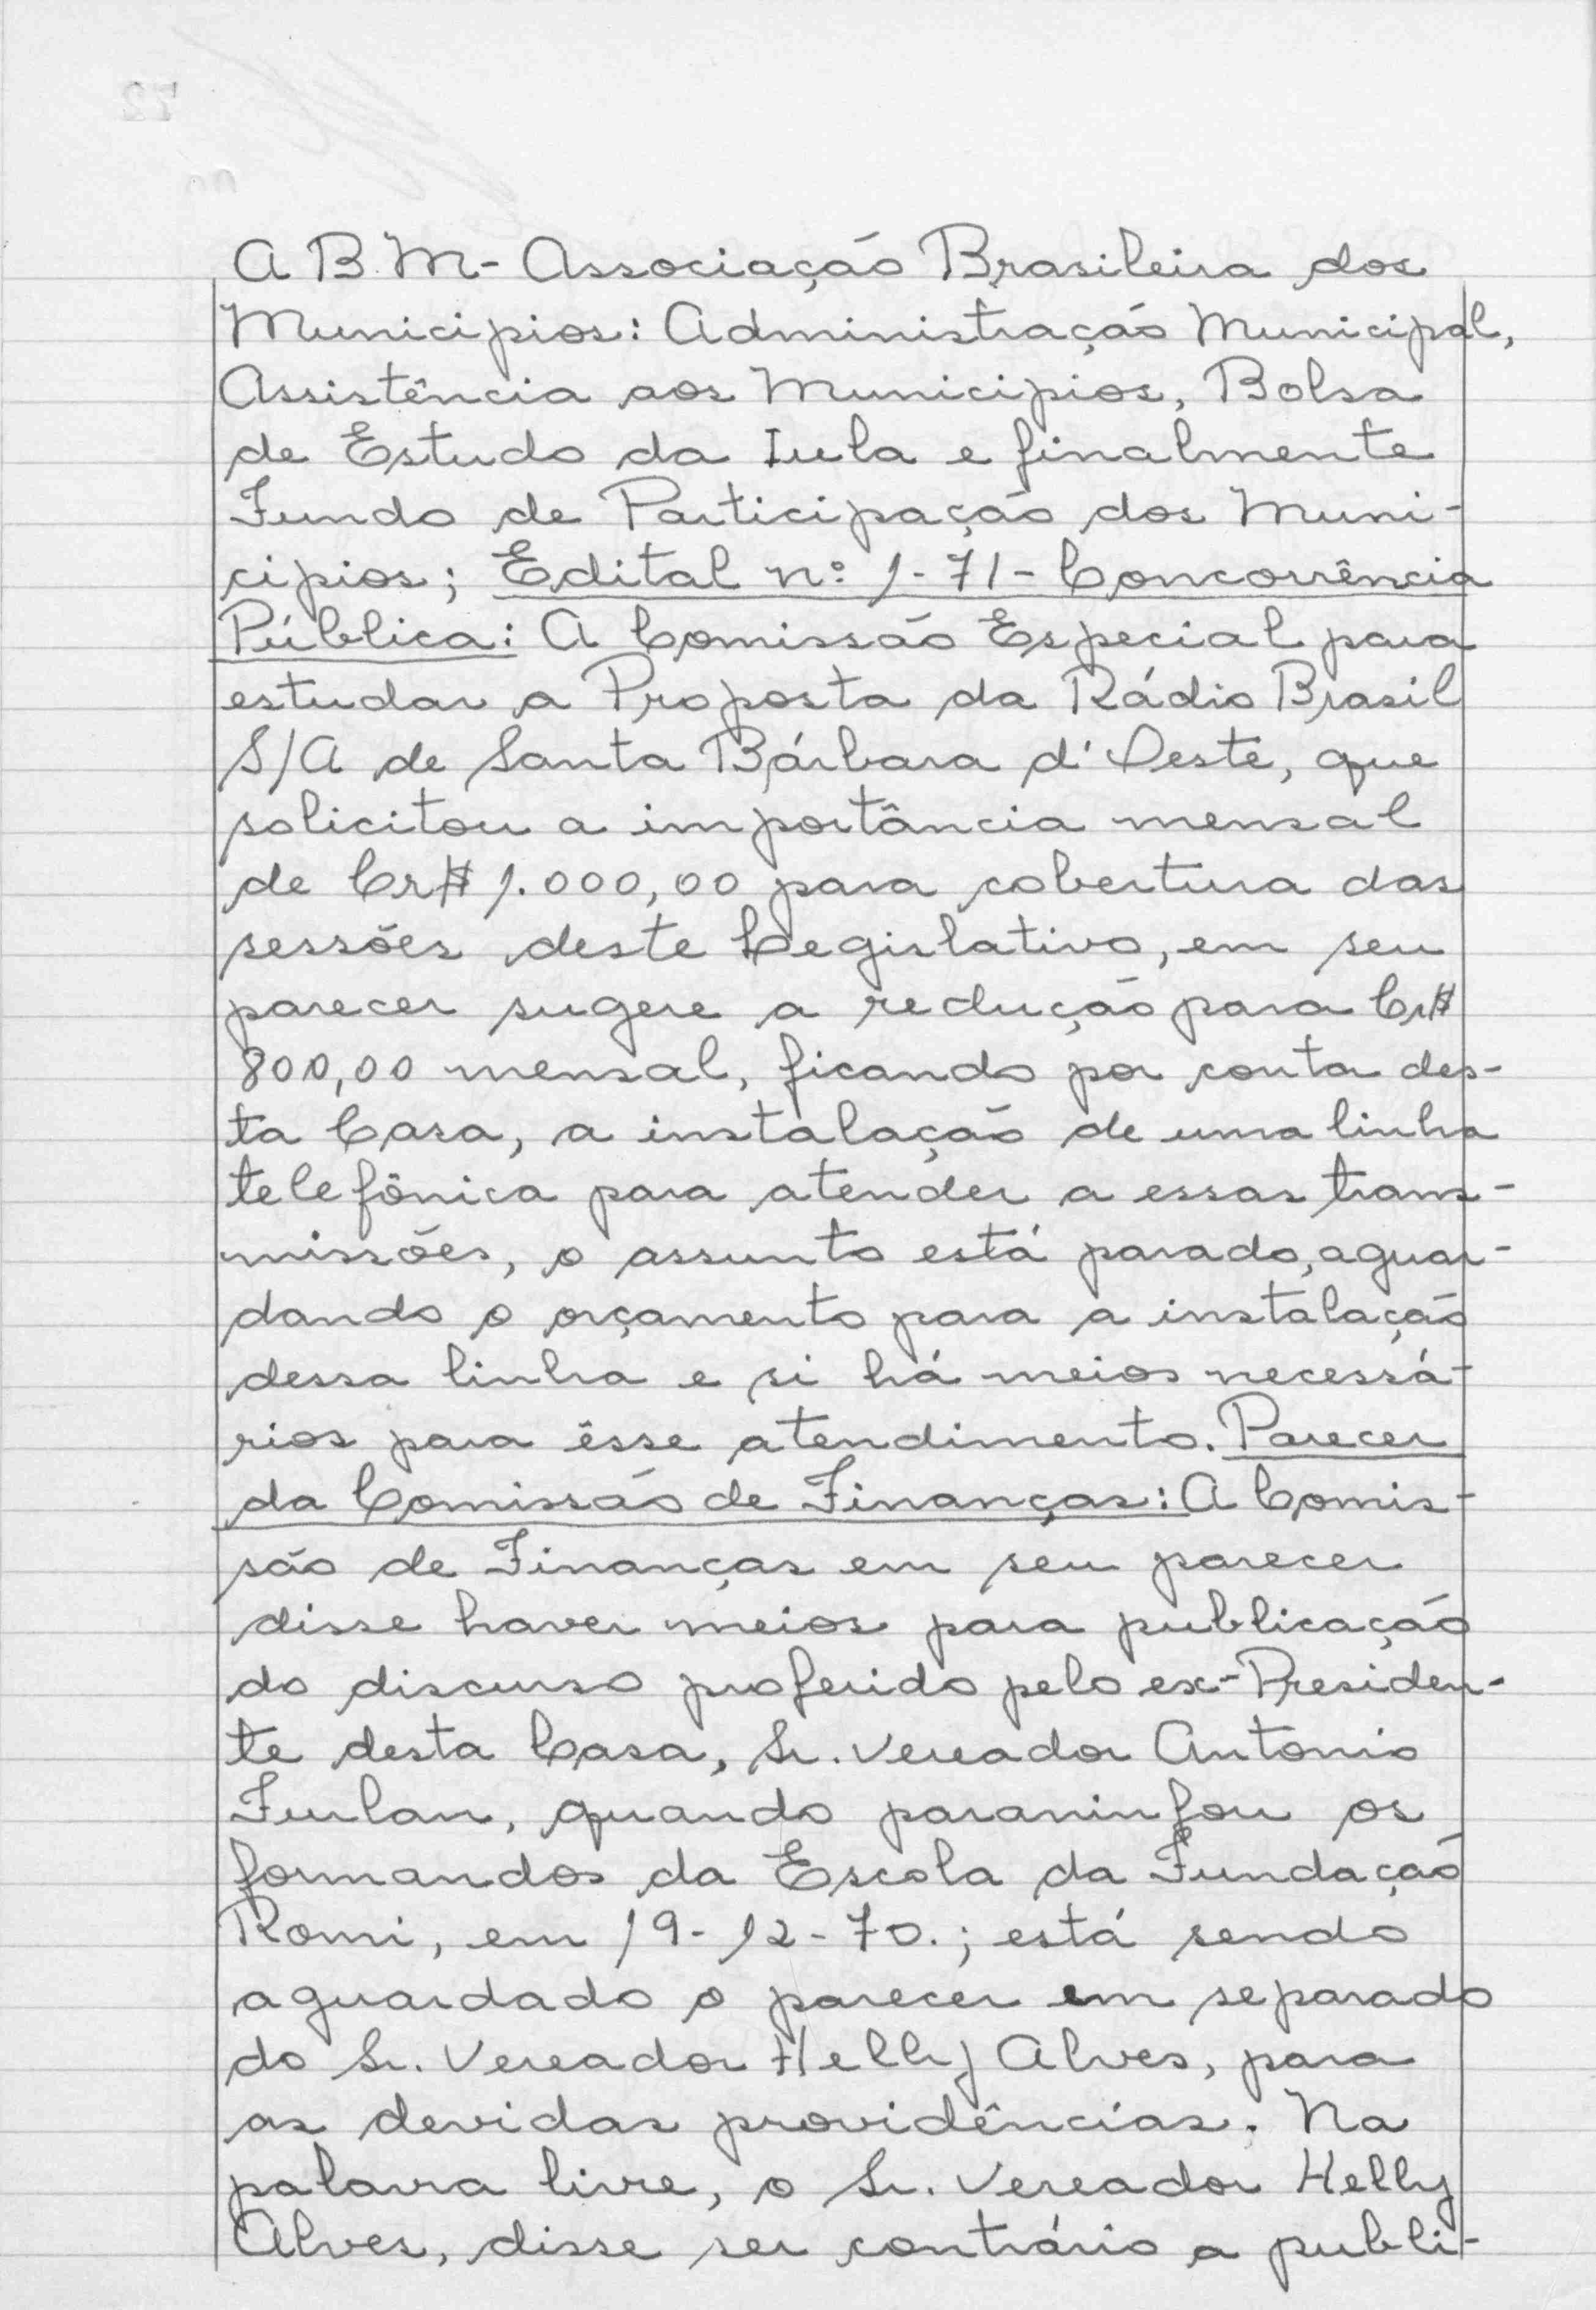 A B M - Associação Brasileira dos
Municipios: Administração Municipal,
Assistência aos Municipios, Bolsa
de Estudo da Iula e finalmente
Fundo de Participação dos Muni-
cipios; Edital nº 1-71 - Concorrência
Pública: A Comissão Especial para
estudar a Proposta da Rádio Brasil
S/A de Santa Bárbara d'Oeste, que
solicitou a importância mensal
de Cr$ 1.000,00 para cobertura das
sessões deste Legislativo, em seu
parecer sugere a redução para Cr$
800,00 mensal, ficando por conta des-
ta Casa, a instalação de uma linha
telefônica para atender a essas trans-
missões, o assunto está parado, aguar-
dando o orçamento para a instalação
dessa linha e si há meios necessá-
rios para êsse atendimento. Parecer
da Comissão de Finanças: A Comis-
são de Finanças em seu parecer
disse haver meios para publicação
do discurso proferido pelo ex-Presiden-
te desta Casa, Sr. Vereador Antonio
Furlan, quando paraninfou os
formandos da Escola da Fundação
Romi, em 19-12-70.; está sendo
aguardado o parecer em separado
do Sr. Vereador Helly Alves, para
as devidas providências. Na
palavra livre, o Sr. Vereador Helly
Alves, disse ser contrário a publi-